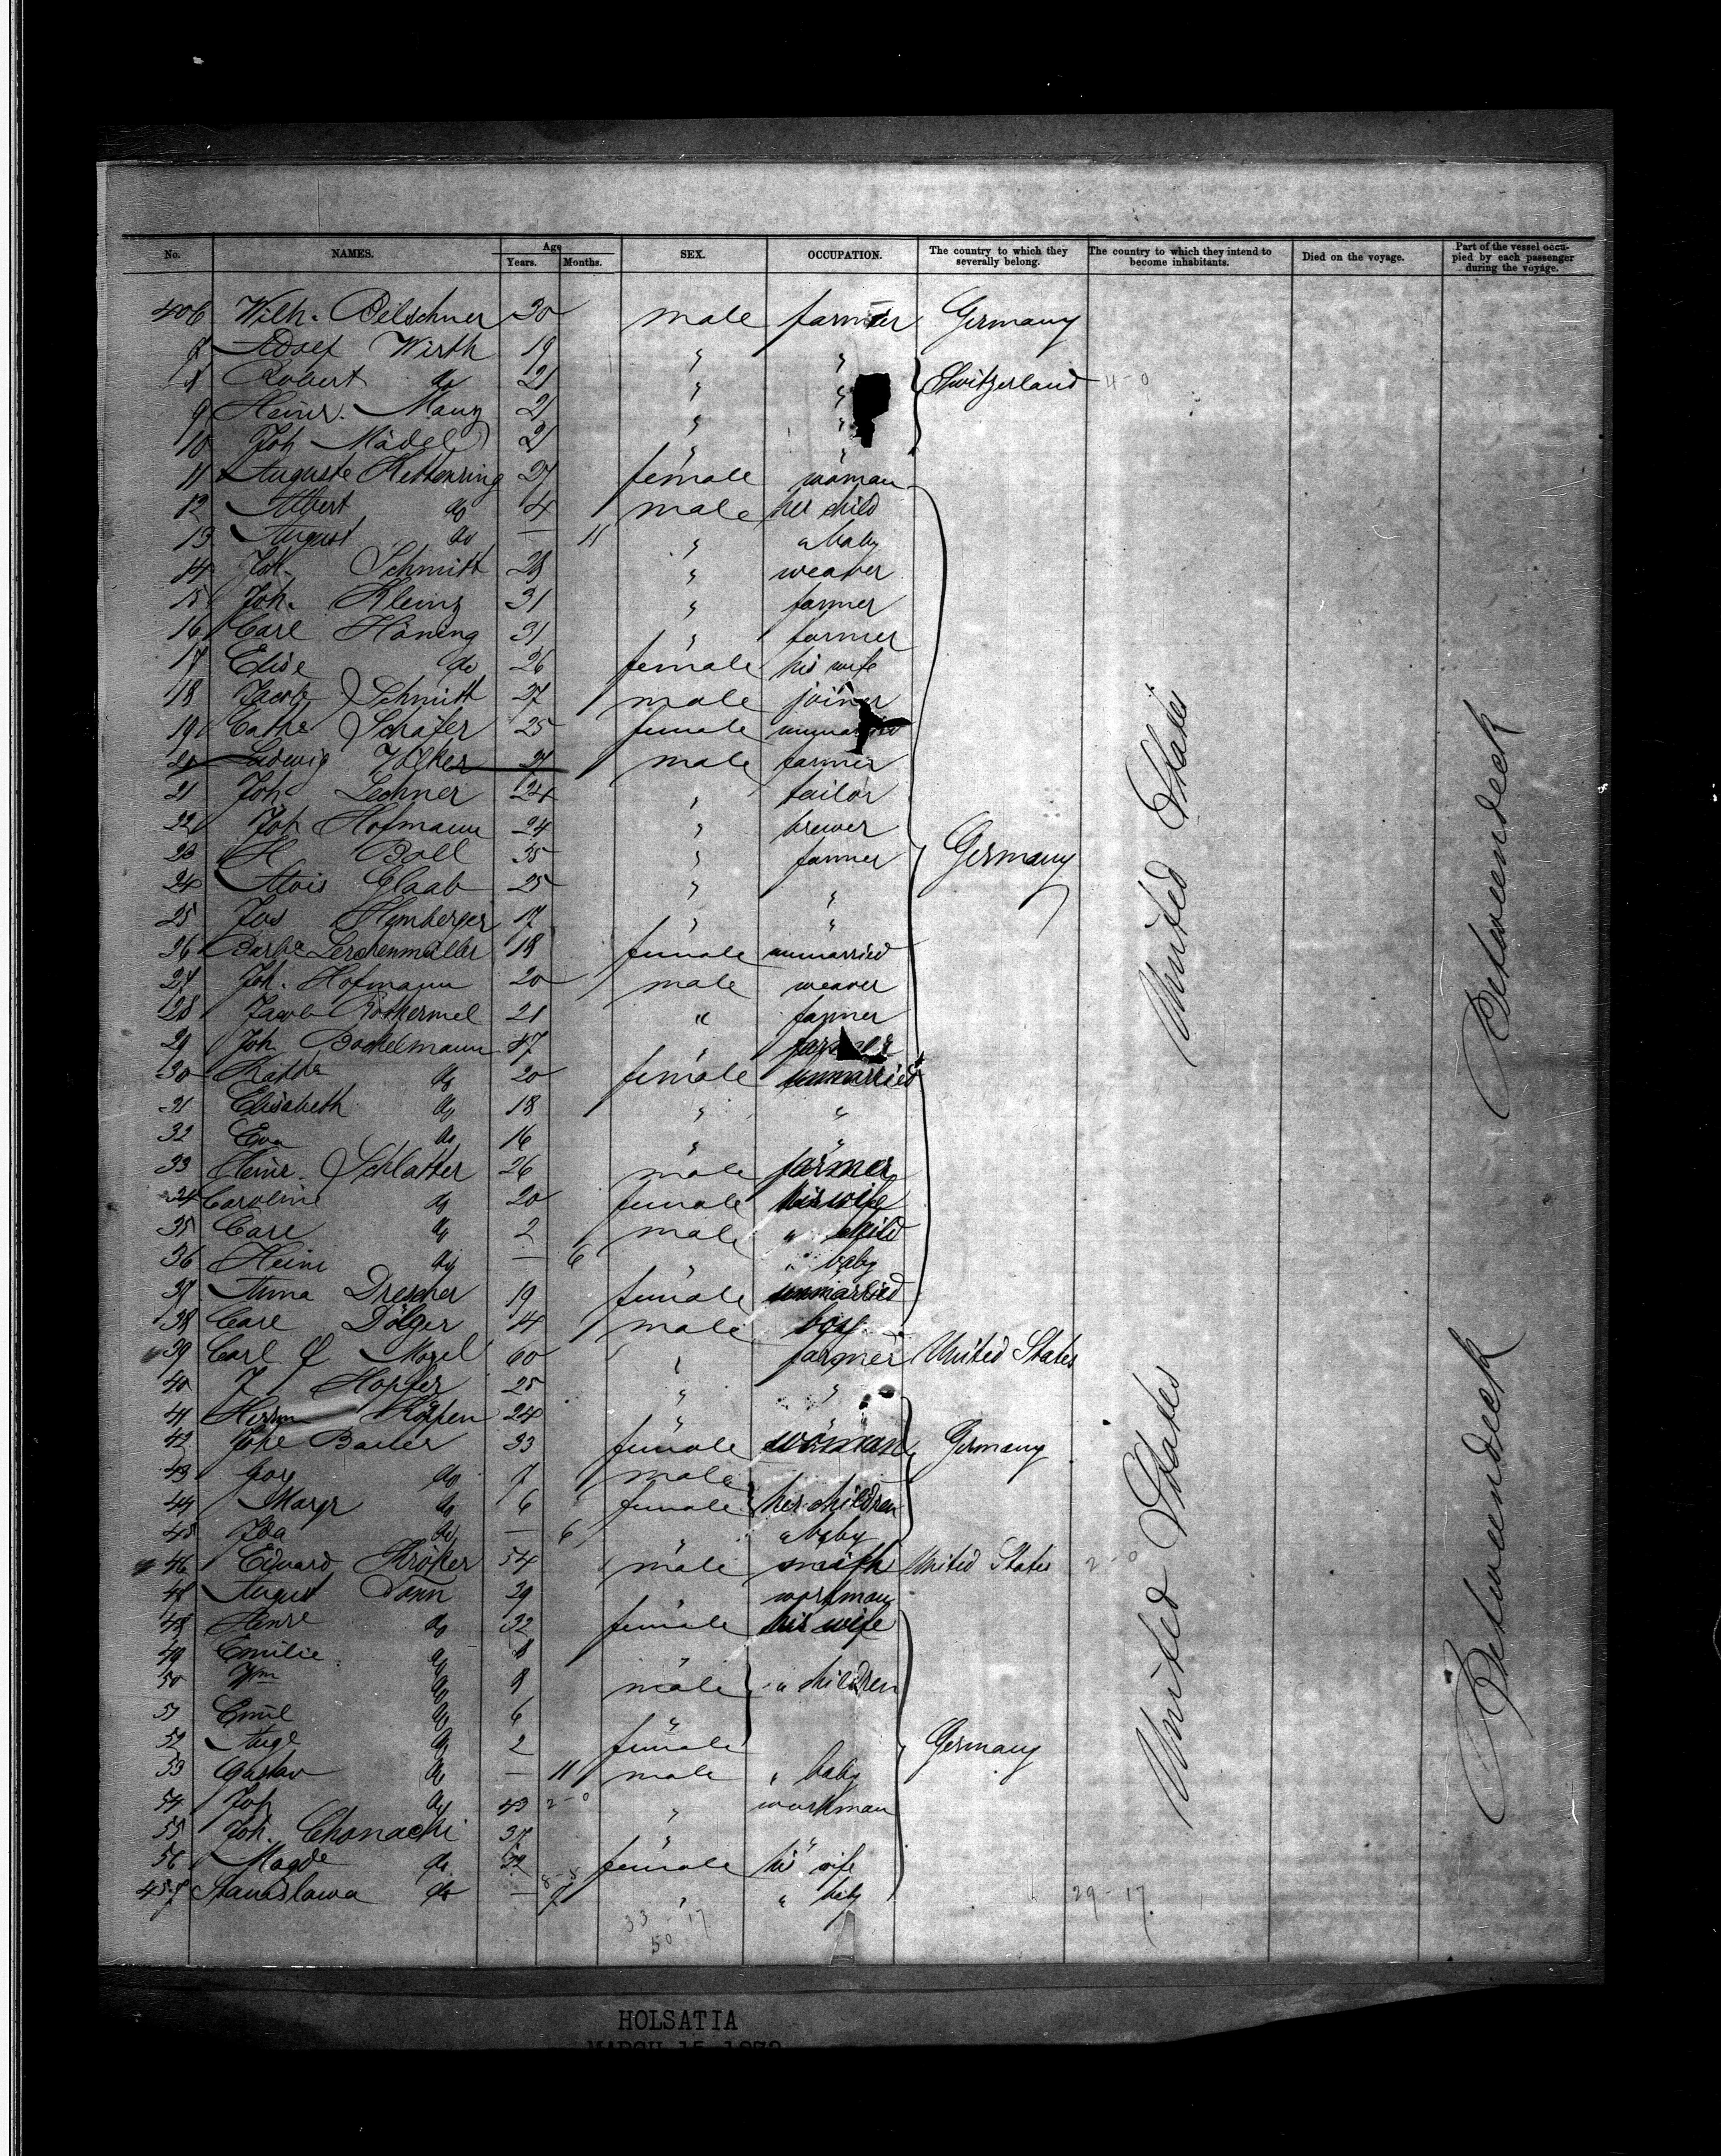 No. NAMES. Age Years. Months. SEX. OCCUPATION. The country to which they severally belong. The country to which they intend to become inhabitants. Died on the voyage. Part of the vessel occupied by each passenger during the voyage.
406 Wilh. 30 male farmer Germany
Adolf Wirth 19 " "
8 Robert do 21 " " Switzerland 4-0
9 Heinr. Manz 21 " "
10 Joh Mädel 21 " "
11 Auguste Kettenring 27 female woman
12 Albert do 4 male her child
13 August do — 11 " " baby
14 Joh. Schmitt 28 " weaver
15 Joh. Kleinz 31 " farmer
16 Carl Höning 31 " farmer
17 Elise do 26 female his wife
18 Jacob Schmitt 27 male joiner
19 Cathe Schäfer 25 female unmarried
20 Ludwig Völker 21 male farmer
21 Joh Lechner 24 " tailor
22 Joh Hofmann 24 " brewer
23 H Boll 35 " farmer Germany
24 Alois Glaab 25 " "
25 Jos 17 " "
26 Barba Lerchenmüller 18 female unmarried
27 Joh. Hofmann 20 male weaver
28 Jacob Rothermel 21 " farmer
29 Joh Bockelmann 47 " farmer
30 Kathe do 20 female unmarried
31 Elisabeth do 18 " "
32 Eva do 16 " "
33 Heinr. Schlatter 26 male farmer
34 Caroline do 20 female his wife
35 Carl do 2 male " child
36 Heinr do — 6 " " baby
37 Anna Drescher 19 female unmarried
38 Carl Dölger 14 male boy
39 Carl 60 " farmer United States
40 J Hopfer 25 " "
41 Herrm Köppen 24 "
42 33 female woman Germany
43 do 7 male
44 Margr do 6 female her children
45 Ida do — 6 " " baby
46 Eduard Kröker 54 male smith United States 2-0
47 August Tonn 39 workman
48 do 32 female his wife
49 Emilie do 8 "
50 Wm do 8 male " children
51 Emil do 6 "
52 Auge do 2 female Germany
53 Gustav do — 11 male " baby
54 Joh do 43 2-0 " workman
55 Joh. Chonacki 37 " "
56 Magde do 32 female his wife
457 Stanislawa do — 7 " " baby 29-17
33-17
50
United States
United States
Betweendeck
Betweendeck
HOLSATIA
MARCH 15 1878